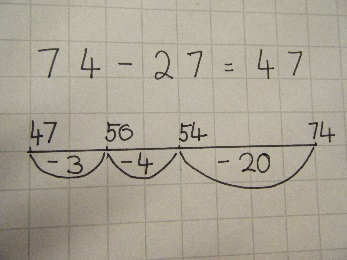 74 - 27 = 47
47 56 54 74
-3 -4 -20